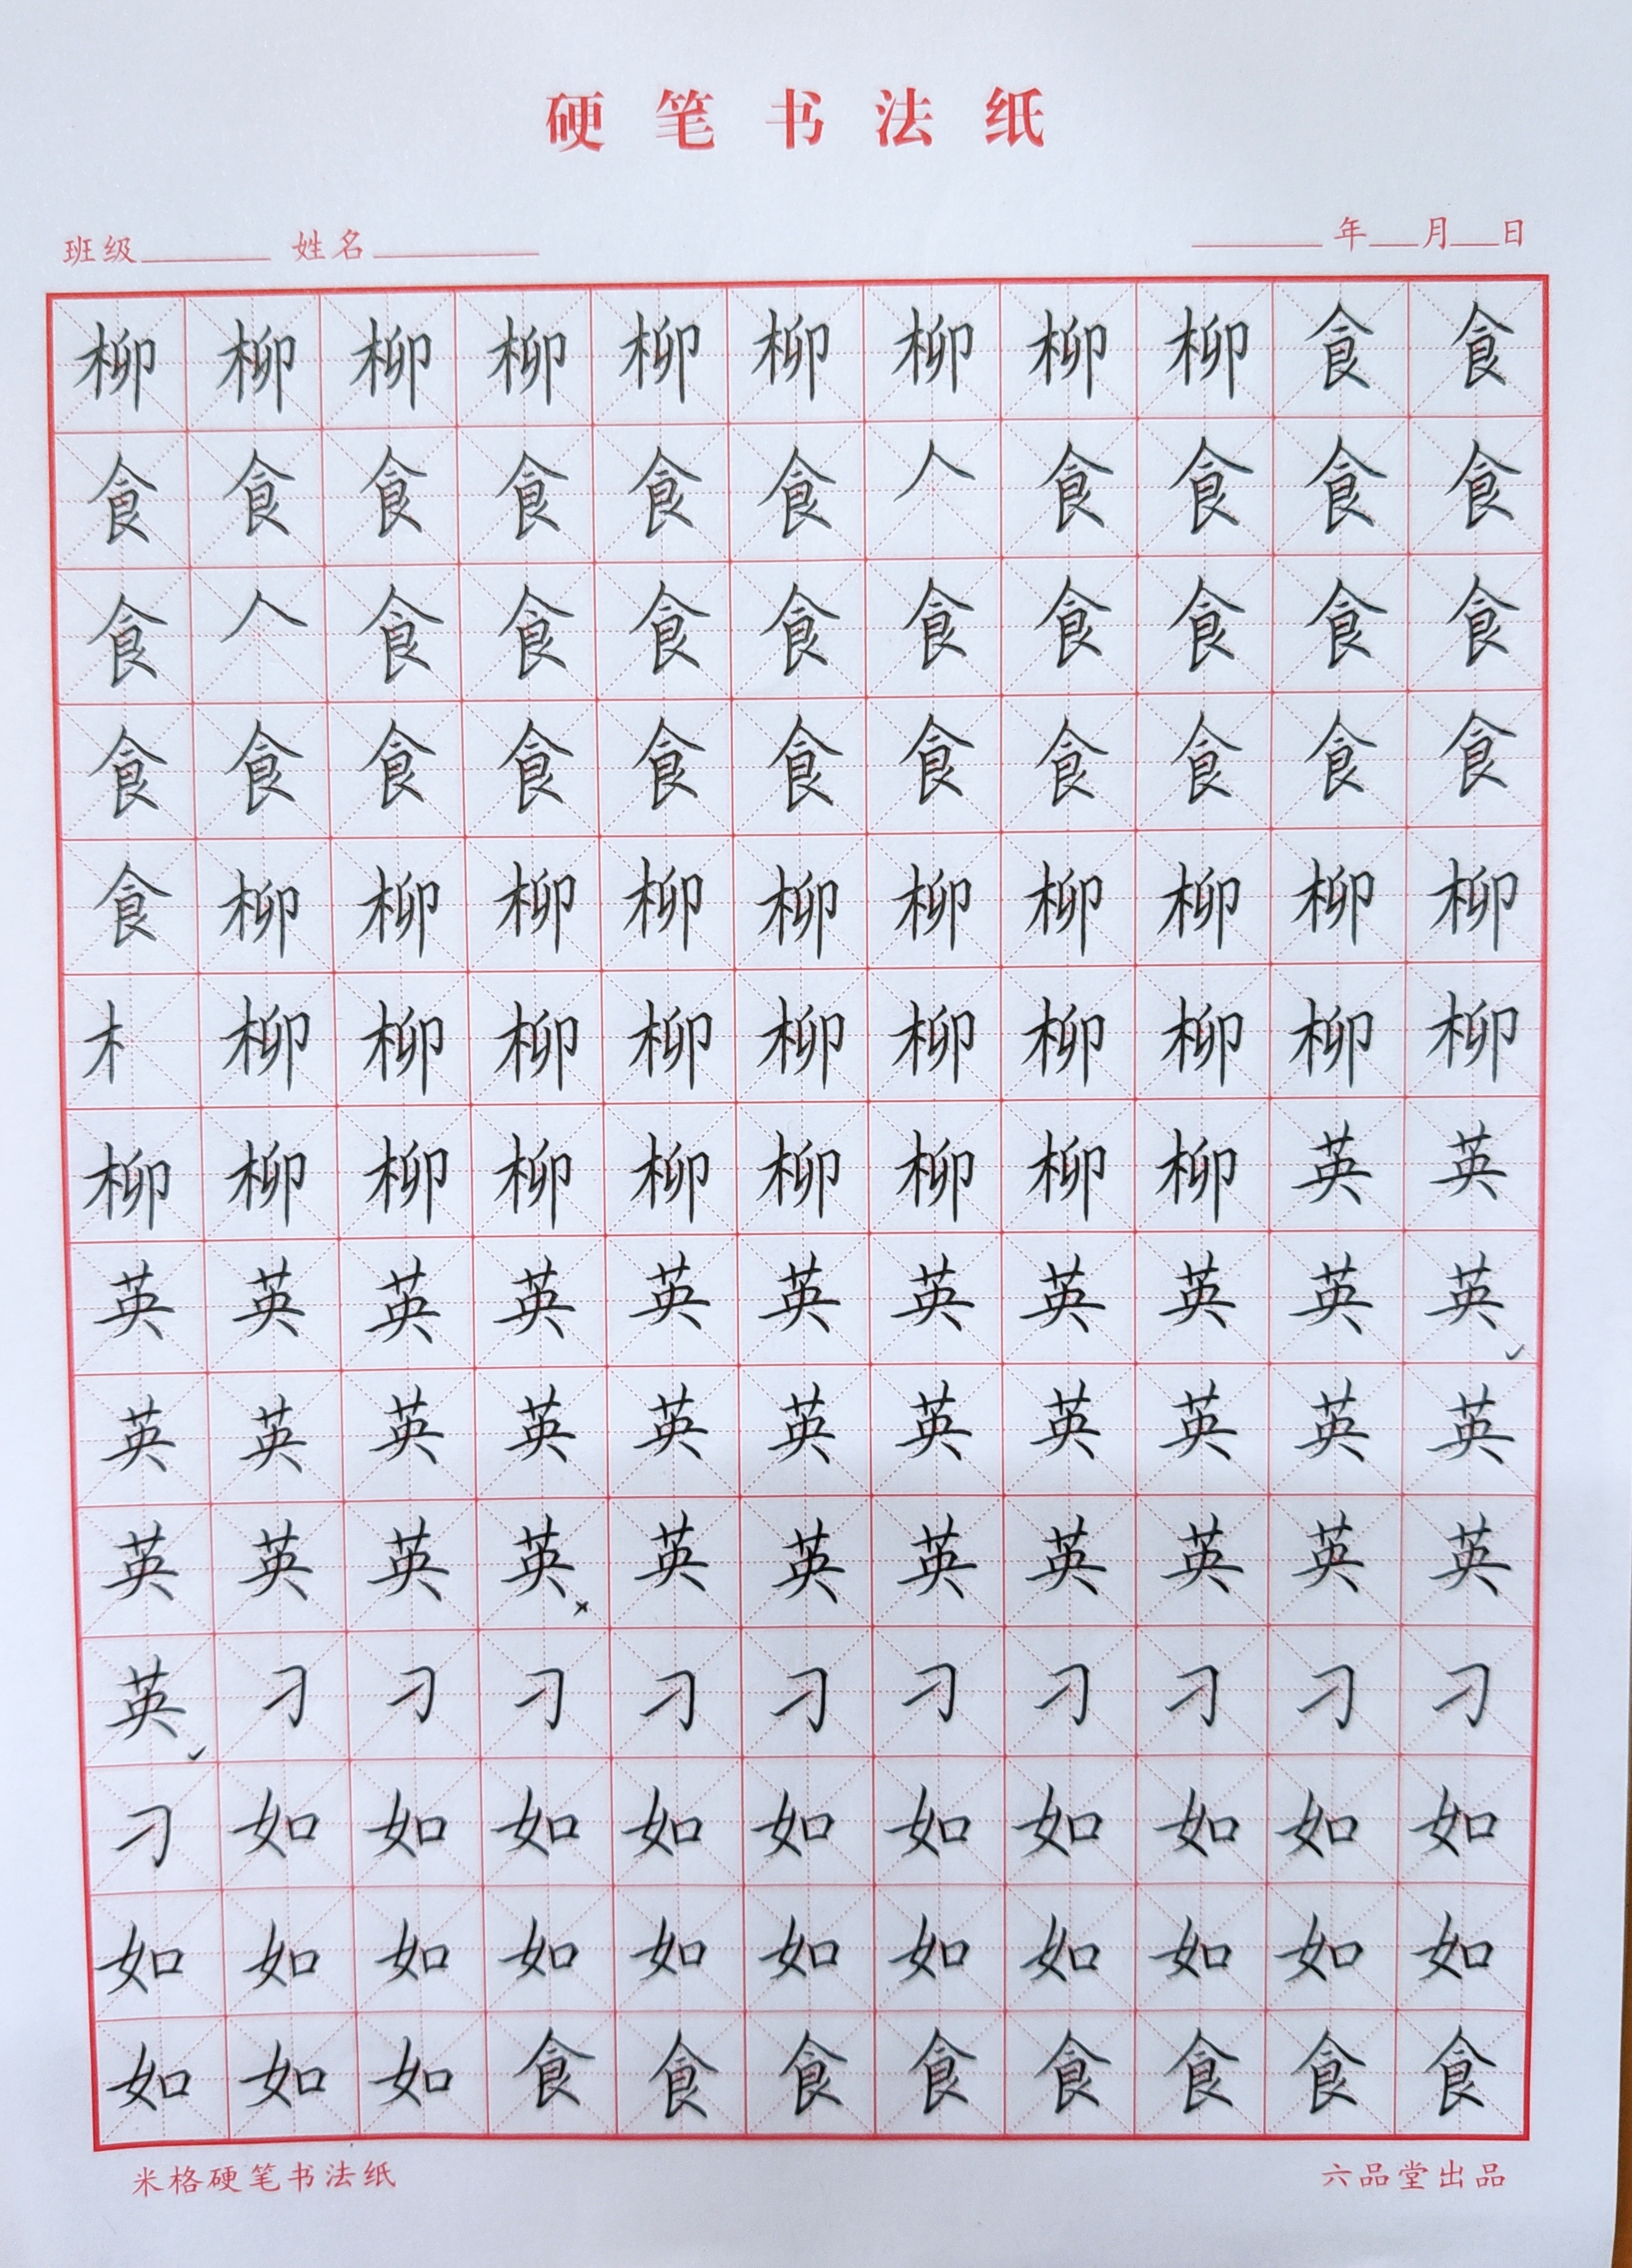 硬笔书法纸
班级 姓名 年 月 日
柳柳柳柳柳柳柳柳柳食食
食食食食食食人食食食食
食人食食食食食食食食食
食食食食食食食食食食食
食柳柳柳柳柳柳柳柳柳柳
木柳柳柳柳柳柳柳柳柳柳
柳柳柳柳柳柳柳柳柳英英
英英英英英英英英英英英
英英英英英英英英英英英
英英英英英英英英英英英
英刁刁刁刁刁刁刁刁刁刁
刁如如如如如如如如如如
如如如如如如如如如如如
如如如食食食食食食食食
米格硬笔书法纸 六品堂出品